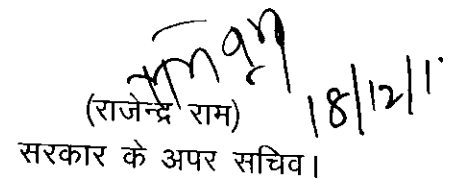 18/12/1
(राजेन्द्र राम)
सरकार के अपर सचिव।